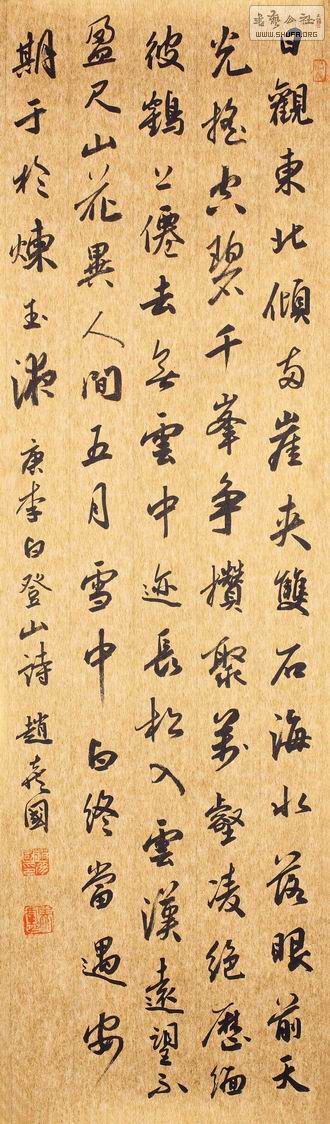 日觀東北傾兩崖夾雙石海水落眼前天
光搖空碧千峯爭攢聚萬壑凌絕歷緬
彼鶴上僊去無雲中迹長松入雲漢遠望不
盈尺山花異人間五月雪中白終當遇安
期于於煉玉液 李白登山詩 趙國
書藝公社
WWW.SHUFA.ORG